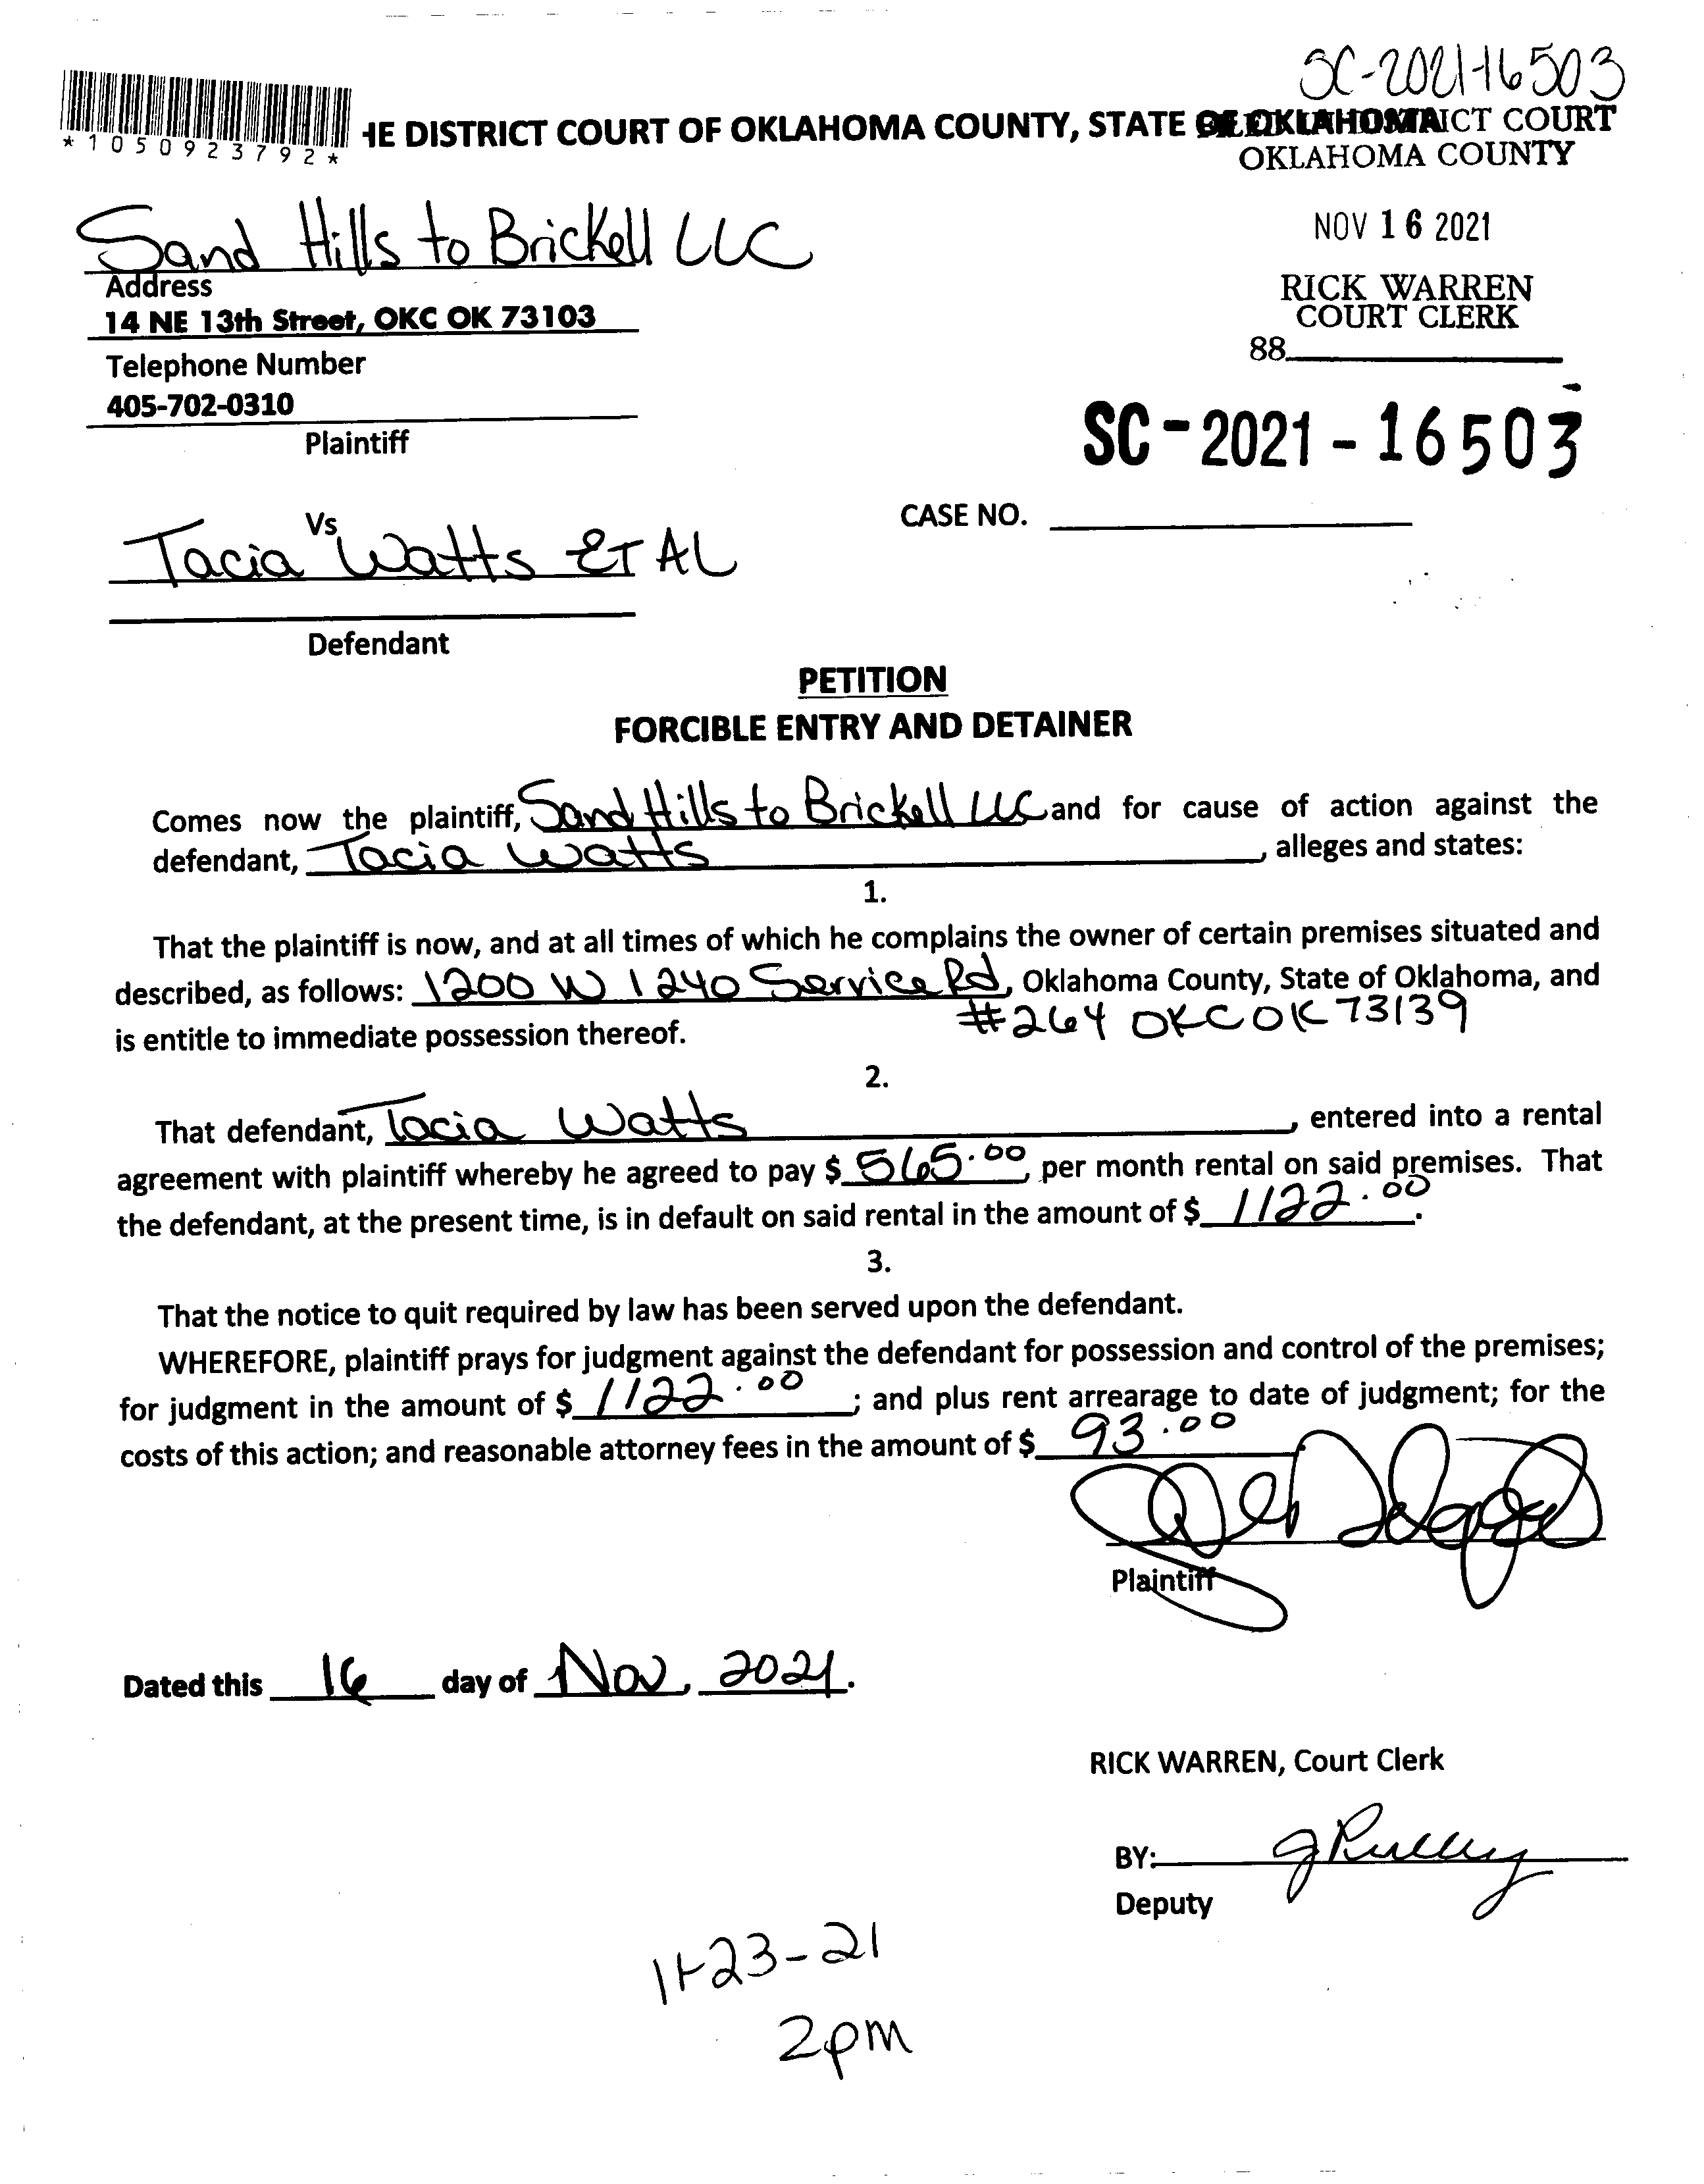 SC-2021-16503
*1050923792*
HE DISTRICT COURT OF OKLAHOMA COUNTY, STATE OF OKLAHOMA
FILED IN DISTRICT COURT
OKLAHOMA COUNTY
Sand Hills to Brickell LLC
NOV 16 2021
Address
14 NE 13th Street, OKC OK 73103
RICK WARREN
COURT CLERK
Telephone Number
88
405-702-0310
Plaintiff
SC-2021-16503
Vs
CASE NO.
Tacia Watts ET AL
Defendant
PETITION
FORCIBLE ENTRY AND DETAINER
Comes now the plaintiff, Sand Hills to Brickell LLC and for cause of action against the
defendant, Tacia Watts, alleges and states:
1.
That the plaintiff is now, and at all times of which he complains the owner of certain premises situated and
described, as follows: 1200 W I240 Service Rd, Oklahoma County, State of Oklahoma, and
#264 OKC OK 73139
is entitle to immediate possession thereof.
2.
That defendant, Tacia Watts, entered into a rental
agreement with plaintiff whereby he agreed to pay $ 565.00 per month rental on said premises. That
the defendant, at the present time, is in default on said rental in the amount of $ 1122.00.
3.
That the notice to quit required by law has been served upon the defendant.
WHEREFORE, plaintiff prays for judgment against the defendant for possession and control of the premises;
for judgment in the amount of $ 1122.00; and plus rent arrearage to date of judgment; for the
costs of this action; and reasonable attorney fees in the amount of $ 93.00
Plaintiff
Dated this 16 day of Nov, 2021.
RICK WARREN, Court Clerk
BY:
Deputy
11-23-21
2pm